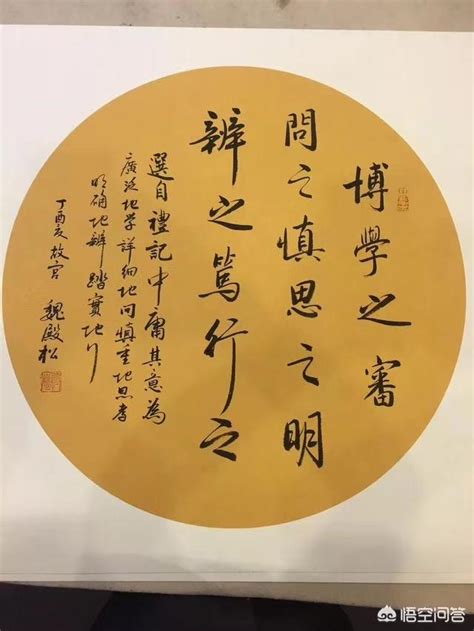 博學之審
問之慎思之明
辨之篤行之
選自禮記中庸其意為
廣泛地学詳细地问慎重地思考
明确地辨踏實地行
丁酉亥故宫 魏殿松
悟空问答